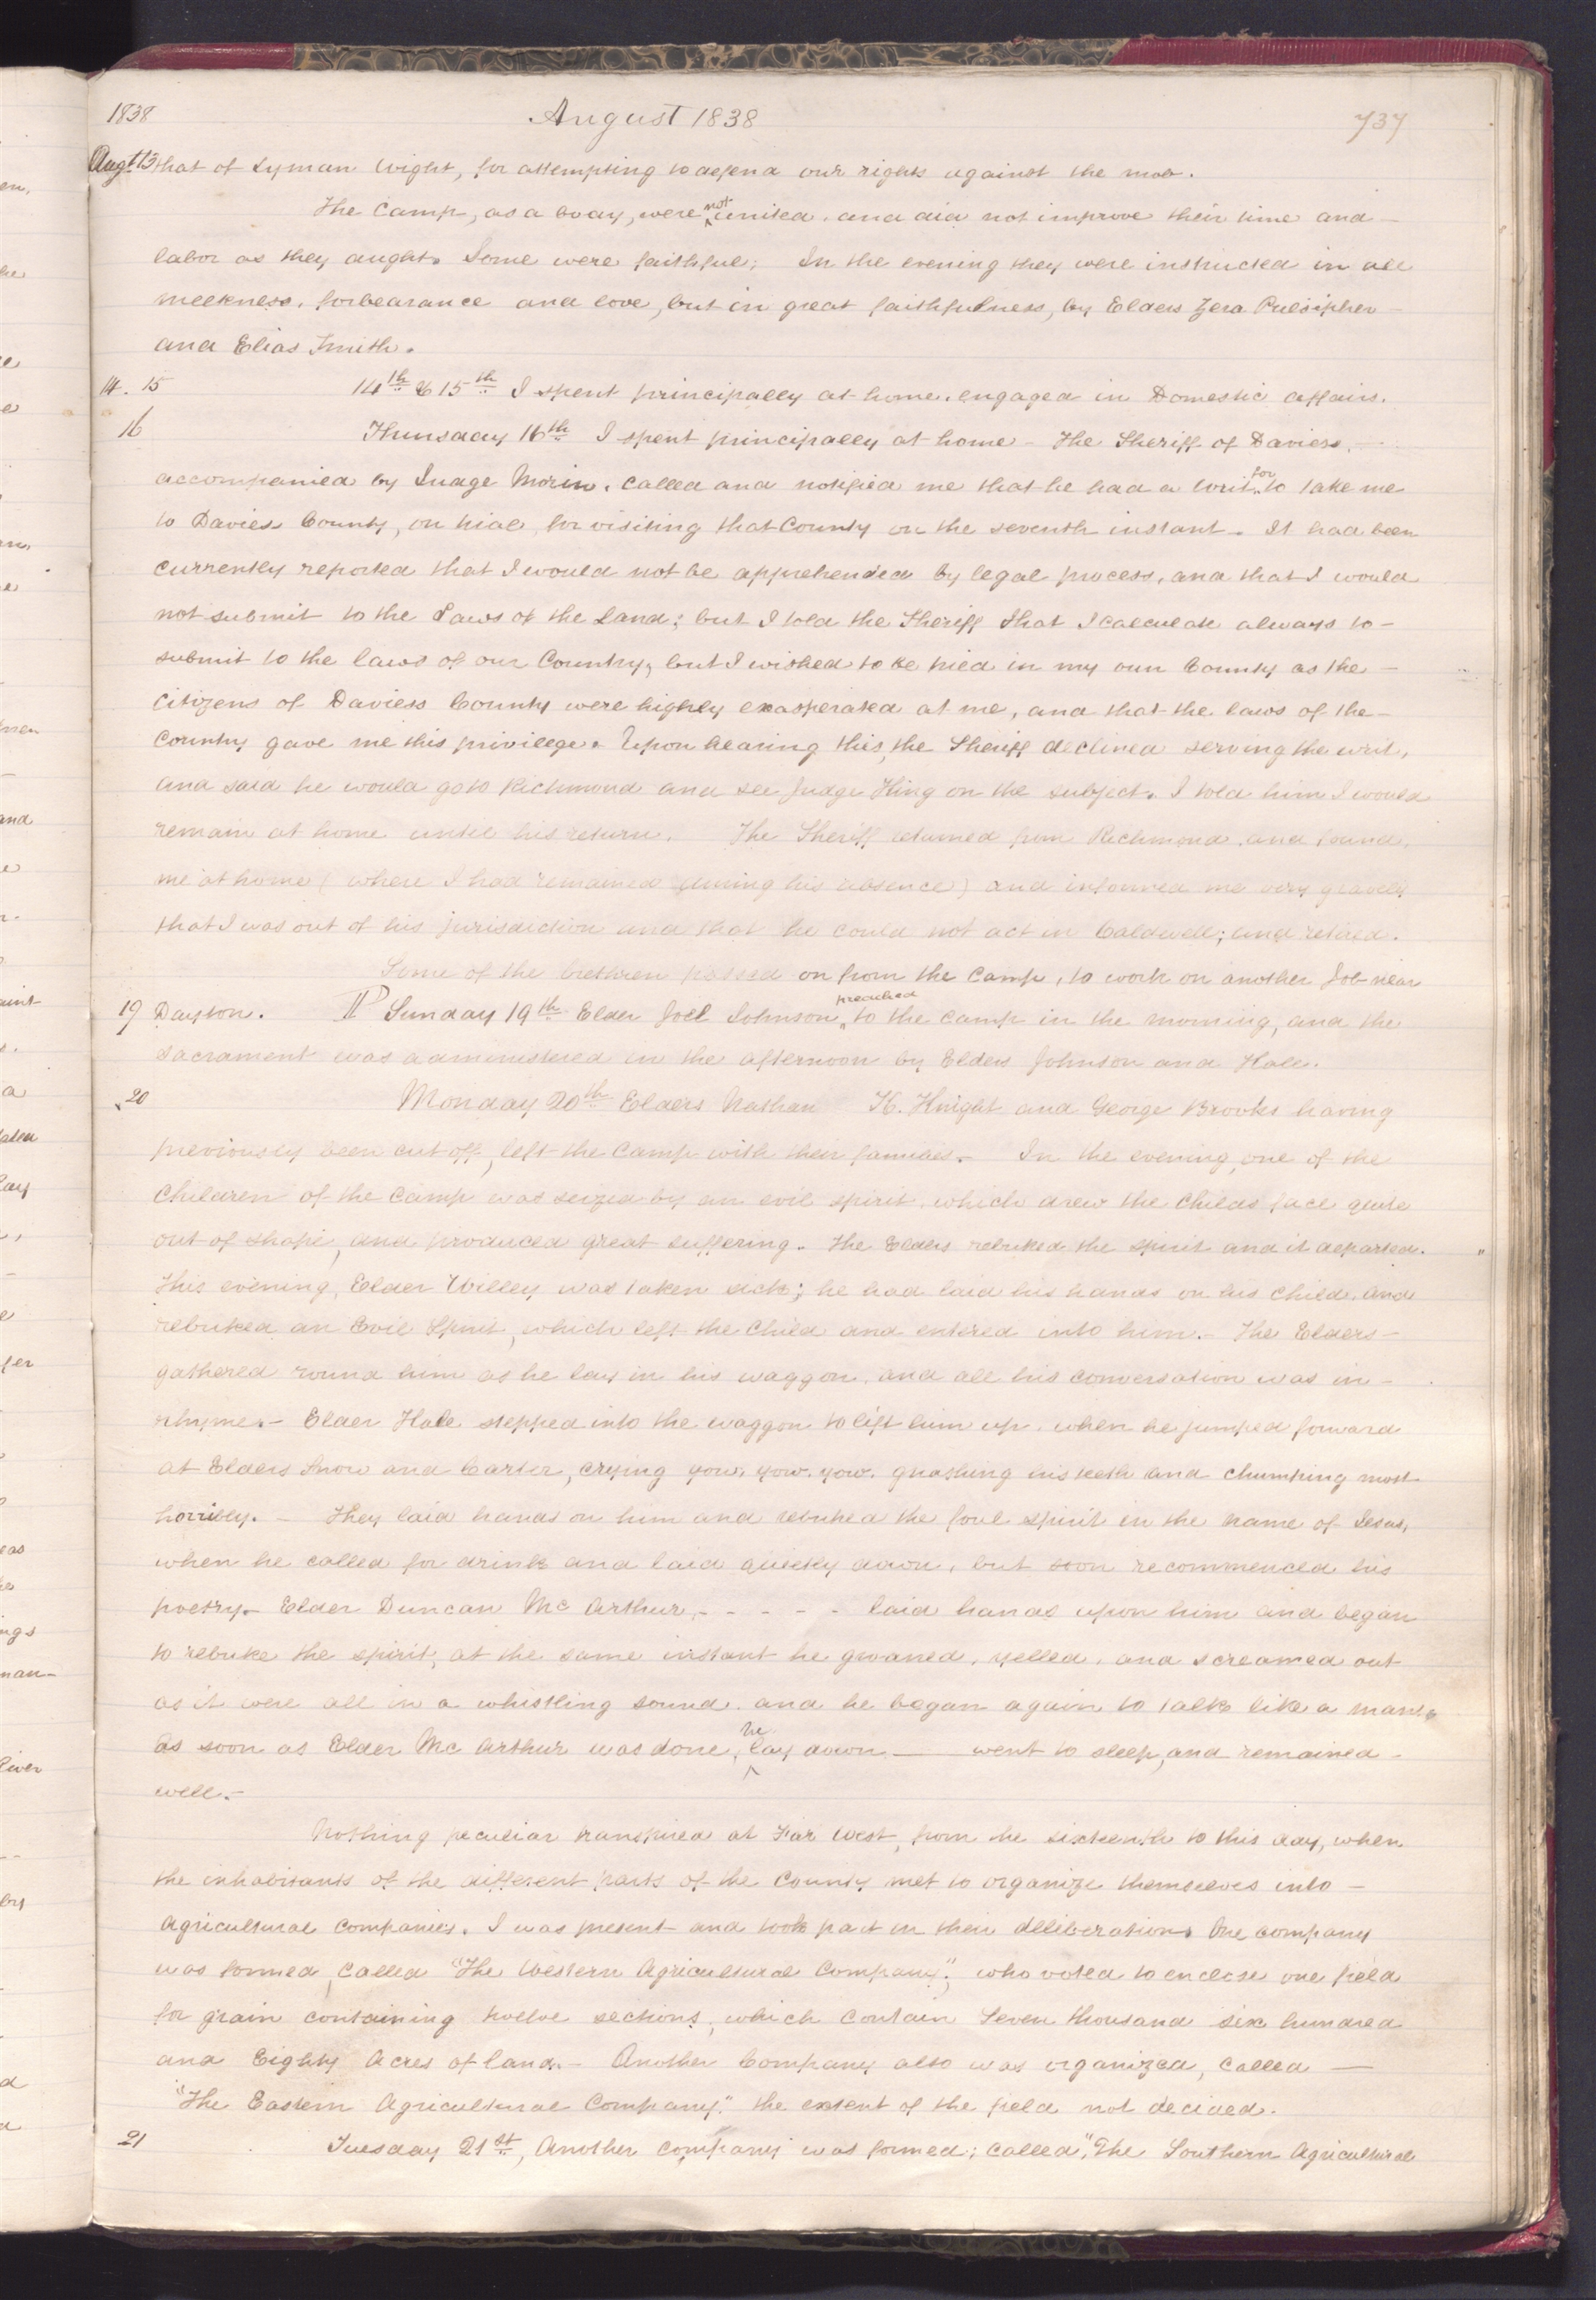 1838 August 1838 737
Augt. 13 that of Lyman Wight, for attempting to defend our rights against the mob.
The Camp, as a body, were not united, and did not improve their time and
labor as they aught. Some were faithful; In the evening they were instructed in all
meekness, forbearance and love, but in great faithfulness, by Elders Zera Pulsipher
and Elias Smith.
14. 15 14th & 15th I spent principally at home, engaged in Domestic affairs.
16 Thursday 16th I spent principally at home - The Sheriff of Daviess,
accompanied by Judge Morin, called and notified me that he had a writ, for to take me
to Daviess County, on trial, for visiting that County on the seventh instant. It had been
currently reported that I would not be apprehended by legal process, and that I would
not submit to the Laws of the Land; but I told the Sheriff that I calculate always to -
submit to the laws of our Country, but I wished to be tried in my own County as the -
Citizens of Daviess County were highly exasperated at me, and that the laws of the -
Country gave me this privilege. Upon hearing this, the Sheriff declined serving the writ,
and said he would go to Richmond and see Judge King on the subject. I told him I would
remain at home until his return. The Sheriff returned from Richmond, and found,
me at home (where I had remained during his absence) and informed me very gravely
that I was out of his jurisdiction and that he could not act in Caldwell; and retired.
Some of the brethren passed on from the Camp, to work on another Job near
19 Dayton. ¶ Sunday 19th Elder Joel Johnson preached to the camp in the morning, and the
Sacrament was administered in the afternoon by Elders Johnson and Hale.
20 Monday 20th Elders Nathan K. Knight and George Brooks having
previously been cut off, left the Camp with their families. In the evening, one of the
Children of the Camp was seized by an evil spirit, which drew the childs face quite
out of shape, and produced great suffering. The Elders rebuked the spirit and it departed.
This evening, Elder Willey was taken sick; he had laid his hands on his child, and
rebuked an Evil Spirit, which left the Child and entered into him. - The Elders -
gathered round him as he lay in his waggon, and all his conversation was in -
rhyme. - Elder Hale stepped into the waggon to lift him up, when he jumped forward
at Elders Snow and Carter, crying yow, yow, yow, gnashing his teeth and chumping most
horribly. - They laid hands on him and rebuked the foul spirit in the name of Jesus,
when he called for drink and laid quietly down, but soon recommenced his
poetry. Elder Duncan Mc Arthur, - - - - - laid hands upon him and began
to rebuke the spirit, at the same instant he groaned, yelled, and screamed out
as it were all in a whistling sound, and he began again to talk like a man.
As soon as Elder Mc Arthur was done, he lay down — went to sleep, and remained -
well. -
Nothing peculiar transpired at Far West, from the sixteenth to this day, when
the inhabitants of the different parts of the County met to organize themselves into -
Agricultural Companies. I was present and took part in their deliberations. One company
was formed, called "The Western Agricultural Company", who voted to enclose one field
for grain containing twelve sections, which contain Seven thousand six hundred
and Eighty Acres of land. - Another Company also was organized, called —
"The Eastern Agricultural Company," the extent of the field not decided.
21 Tuesday 21st, Another company was formed; called, "The Southern Agricultural